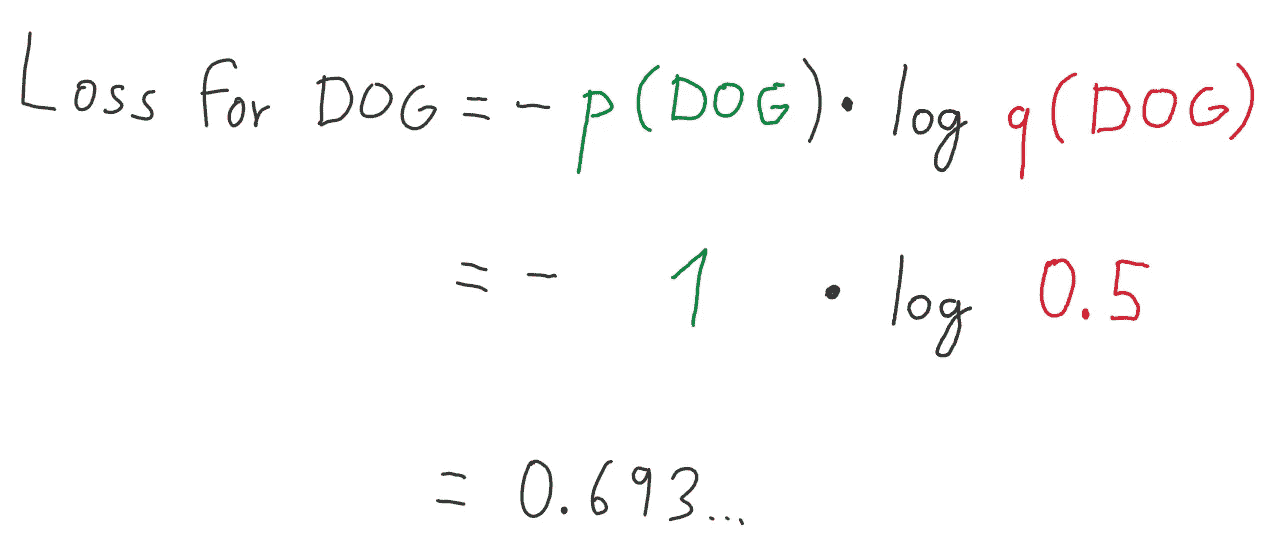 Loss for DOG = - p(DOG) · log q(DOG)
= - 1 · log 0.5
= 0.693...